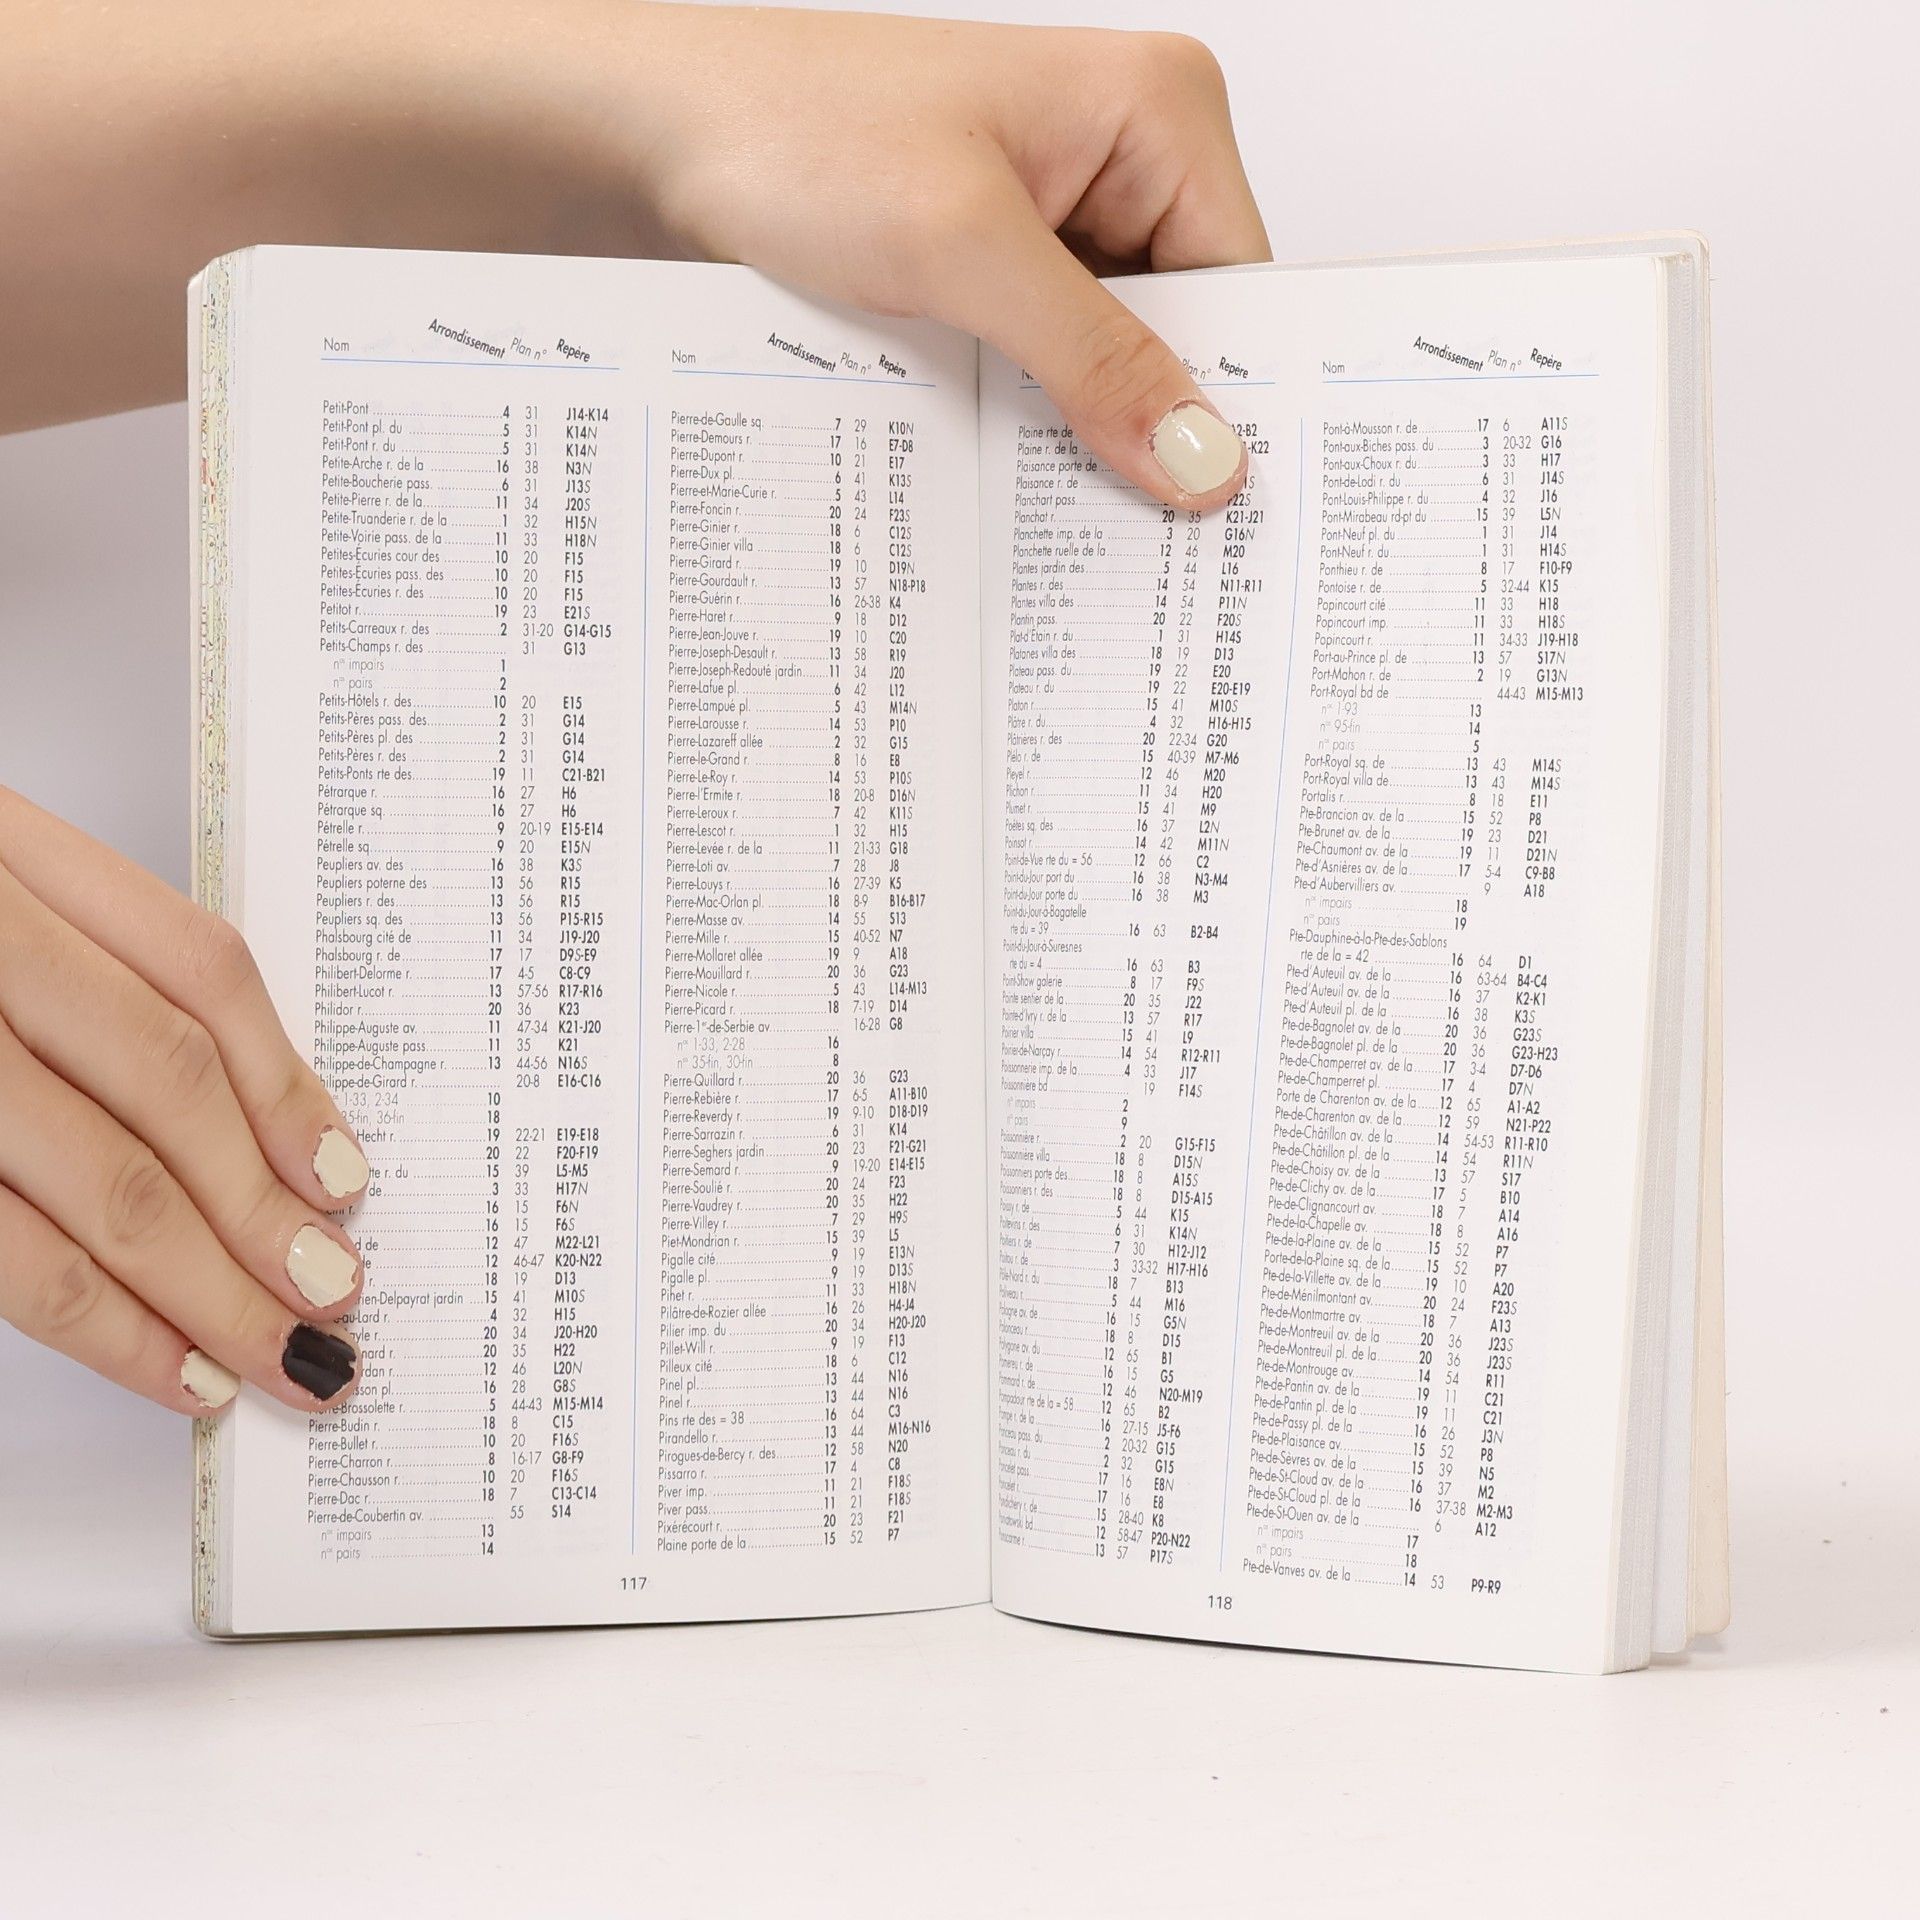 Nom Arrondissement Plan n° Repère
Petit-Pont 4 31 J14-K14
Petit-Pont pl. du 5 31 K14N
Petit-Pont r. du 5 31 K14N
Petite-Arche r. de la 16 38 N3N
Petite-Boucherie pass. 6 31 J13S
Petite-Pierre r. de la 11 34 J20S
Petite-Truanderie r. de la 1 32 H15N
Petite-Voirie pass. de la 11 33 H18N
Petites-Écuries cour des 10 20 F15
Petites-Écuries pass. des 10 20 F15
Petites-Écuries r. des 10 20 F15
Petitot r. 19 23 E21S
Petits-Carreaux r. des 2 31-20 G14-G15
Petits-Champs r. des 31 G13
nos impairs 1
nos pairs 2
Petits-Hôtels r. des 10 20 E15
Petits-Pères pass. des 2 31 G14
Petits-Pères pl. des 2 31 G14
Petits-Pères r. des 2 31 G14
Petits-Ponts rte des 19 11 C21-B21
Pétrarque r. 16 27 H6
Pétrarque sq. 16 27 H6
Pétrelle r. 9 20-19 E15-E14
Pétrelle sq. 9 20 E15N
Peupliers av. des 16 38 K3S
Peupliers poterne des 13 56 R15
Peupliers r. des 13 56 R15
Peupliers sq. des 13 56 P15-R15
Phalsbourg cité de 11 34 J19-J20
Phalsbourg r. de 17 17 D9S-E9
Philibert-Delorme r. 17 4-5 C8-C9
Philibert-Lucot r. 13 57-56 R17-R16
Philidor r. 20 36 K23
Philippe-Auguste av. 11 47-34 K21-J20
Philippe-Auguste pass. 11 35 K21
Philippe-de-Champagne r. 13 44-56 N16S
hilippe-de-Girard r. 20-8 E16-C16
1-33, 2-34 10
35-fin, 36-fin 18
Hecht r. 19 22-21 E19-E18
20 22 F20-F19
tte r. du 15 39 L5-M5
de 3 33 H17N
r. 16 15 F6N
r. 16 15 F6S
d de 12 47 M22-L21
12 46-47 K20-N22
r. 18 19 D13
rien-Delpayrat jardin 15 41 M10S
-au-Lard r. 4 32 H15
ayle r. 20 34 J20-H20
nard r. 20 35 H22
rdan r. 12 46 L20N
sson pl. 16 28 G8S
-Brossolette r. 5 44-43 M15-M14
Pierre-Budin r. 18 8 C15
Pierre-Bullet r. 10 20 F16S
Pierre-Charron r. 8 16-17 G8-F9
Pierre-Chausson r. 10 20 F16S
Pierre-Dac r. 18 7 C13-C14
Pierre-de-Coubertin av. 55 S14
nos impairs 13
nos pairs 14
Nom Arrondissement Plan n° Repère
Pierre-de-Gaulle sq. 7 29 K10N
Pierre-Demours r. 17 16 E7-D8
Pierre-Dupont r. 10 21 E17
Pierre-Dux pl. 6 41 K13S
Pierre-et-Marie-Curie r. 5 43 L14
Pierre-Foncin r. 20 24 F23S
Pierre-Ginier r. 18 6 C12S
Pierre-Ginier villa 18 6 C12S
Pierre-Girard r. 19 10 D19N
Pierre-Gourdault r. 13 57 N18-P18
Pierre-Guérin r. 16 26-38 K4
Pierre-Haret r. 9 18 D12
Pierre-Jean-Jouve r. 19 10 C20
Pierre-Joseph-Desault r. 13 58 R19
Pierre-Joseph-Redouté jardin 11 34 J20
Pierre-Lafue pl. 6 42 L12
Pierre-Lampué pl. 5 43 M14N
Pierre-Larousse r. 14 53 P10
Pierre-Lazareff allée 2 32 G15
Pierre-le-Grand r. 8 16 E8
Pierre-Le-Roy r. 14 53 P10S
Pierre-l'Ermite r. 18 20-8 D16N
Pierre-Leroux r. 7 42 K11S
Pierre-Lescot r. 1 32 H15
Pierre-Levée r. de la 11 21-33 G18
Pierre-Loti av. 7 28 J8
Pierre-Louys r. 16 27-39 K5
Pierre-Mac-Orlan pl. 18 8-9 B16-B17
Pierre-Masse av. 14 55 S13
Pierre-Mille r. 15 40-52 N7
Pierre-Mollaret allée 19 9 A18
Pierre-Mouillard r. 20 36 G23
Pierre-Nicole r. 5 43 L14-M13
Pierre-Picard r. 18 7-19 D14
Pierre-1er-de-Serbie av. 16-28 G8
nos 1-33, 2-28 16
nos 35-fin, 30-fin 8
Pierre-Quillard r. 20 36 G23
Pierre-Rebière r. 17 6-5 A11-B10
Pierre-Reverdy r. 19 9-10 D18-D19
Pierre-Sarrazin r. 6 31 K14
Pierre-Seghers jardin 20 23 F21-G21
Pierre-Semard r. 9 19-20 E14-E15
Pierre-Soulié r. 20 24 F23
Pierre-Vaudrey r. 20 35 H22
Pierre-Villey r. 7 29 H9S
Piet-Mondrian r. 15 39 L5
Pigalle cité 9 19 E13N
Pigalle pl. 9 19 D13S
Pihet r. 11 33 H18N
Pilâtre-de-Rozier allée 16 26 H4-J4
Pilier imp. du 20 34 H20-J20
Pillet-Will r. 9 19 F13
Pilleux cité 18 6 C12
Pinel pl. 13 44 N16
Pinel r. 13 44 N16
Pins rte des = 38 16 64 C3
Pirandello r. 13 44 M16-N16
Pirogues-de-Bercy r. des 12 58 N20
Pissarro r. 17 4 C8
Piver imp. 11 21 F18S
Piver pass. 11 21 F18S
Pixérécourt r. 20 23 F21
Plaine porte de la 15 52 P7
117
Plan n° Repère
Plaine rte de A2-B2
Plaine r. de la -K22
Plaisance porte de
Plaisance r. de 1S
Planchart pass. F22S
Planchat r. 20 35 K21-J21
Planchette imp. de la 3 20 G16N
Planchette ruelle de la 12 46 M20
Plantes jardin des 5 44 L16
Plantes r. des 14 54 N11-R11
Plantes villa des 14 54 P11N
Plantin pass. 20 22 F20S
Plat-d'Étain r. du 1 31 H14S
Platanes villa des 18 19 D13
Plateau pass. du 19 22 E20
Plateau r. du 19 22 E20-E19
Platon r. 15 41 M10S
Plâtre r. du 4 32 H16-H15
Plâtrières r. des 20 22-34 G20
Plélo r. de 15 40-39 M7-M6
Pleyel r. 12 46 M20
Plichon r. 11 34 H20
Plumet r. 15 41 M9
Poètes sq. des 16 37 L2N
Poinsot r. 14 42 M11N
Point-de-Vue rte du = 56 12 66 C2
Point-du-Jour port du 16 38 N3-M4
Point-du-Jour porte du 16 38 M3
Point-du-Jour-à-Bagatelle
rte du = 39 16 63 B2-B4
Point-du-Jour-à-Suresnes
rte du = 4 16 63 B3
Point-Show galerie 8 17 F9S
Pointe sentier de la 20 35 J22
Pointe-d'Ivry r. de la 13 57 R17
Poirier villa 15 41 L9
Poirier-de-Narçay r. 14 54 R12-R11
Poissonnerie imp. de la 4 33 J17
Poissonnière bd 19 F14S
nos impairs 2
nos pairs 9
Poissonnière r. 2 20 G15-F15
Poissonnière villa 18 8 D15N
Poissonniers porte des 18 8 A15S
Poissonniers r. des 18 8 D15-A15
Poissy r. de 5 44 K15
Poitevins r. des 6 31 K14N
Poitiers r. de 7 30 H12-J12
Poitou r. de 3 33-32 H17-H16
Pôle-Nord r. du 18 7 B13
Poliveau r. 5 44 M16
Pologne av. de 16 15 G5N
Polonceau r. 18 8 D15
Polygone av. du 12 65 B1
Pomereu r. de 16 15 G5
Pommard r. de 12 46 N20-M19
Pompadour rte de la = 58 12 65 B2
Pompe r. de la 16 27-15 J5-F6
Ponceau pass. du 2 20-32 G15
Ponceau r. du 2 32 G15
Poncelet pass. 17 16 E8N
Poncelet r. 17 16 E8
Pondichéry r. de 15 28-40 K8
Poniatowski bd 12 58-47 P20-N22
Ponscarme r. 13 57 P17S
Nom Arrondissement Plan n° Repère
Pont-à-Mousson r. de 17 6 A11S
Pont-aux-Biches pass. du 3 20-32 G16
Pont-aux-Choux r. du 3 33 H17
Pont-de-Lodi r. du 6 31 J14S
Pont-Louis-Philippe r. du 4 32 J16
Pont-Mirabeau rd-pt du 15 39 L5N
Pont-Neuf pl. du 1 31 J14
Pont-Neuf r. du 1 31 H14S
Ponthieu r. de 8 17 F10-F9
Pontoise r. de 5 32-44 K15
Popincourt cité 11 33 H18
Popincourt imp. 11 33 H18S
Popincourt r. 11 34-33 J19-H18
Port-au-Prince pl. de 13 57 S17N
Port-Mahon r. de 2 19 G13N
Port-Royal bd de 44-43 M15-M13
nos 1-93 13
nos 95-fin 14
nos pairs 5
Port-Royal sq. de 13 43 M14S
Port-Royal villa de 13 43 M14S
Portalis r. 8 18 E11
Pte-Brancion av. de la 15 52 P8
Pte-Brunet av. de la 19 23 D21
Pte-Chaumont av. de la 19 11 D21N
Pte-d'Asnières av. de la 17 5-4 C9-B8
Pte-d'Aubervilliers av. 9 A18
nos impairs 18
nos pairs 19
Pte-Dauphine-à-la-Pte-des-Sablons
rte de la = 42 16 64 D1
Pte-d'Auteuil av. de la 16 63-64 B4-C4
Pte-d'Auteuil av. de la 16 37 K2-K1
Pte-d'Auteuil pl. de la 16 38 K3S
Pte-de-Bagnolet av. de la 20 36 G23S
Pte-de-Bagnolet pl. de la 20 36 G23-H23
Pte-de-Champerret av. de la 17 3-4 D7-D6
Pte-de-Champerret pl. 17 4 D7N
Porte de Charenton av. de la 12 65 A1-A2
Pte-de-Charenton av. de la 12 59 N21-P22
Pte-de-Châtillon av. de la 14 54-53 R11-R10
Pte-de-Châtillon pl. de la 14 54 R11N
Pte-de-Choisy av. de la 13 57 S17
Pte-de-Clichy av. de la 17 5 B10
Pte-de-Clignancourt av. 18 7 A14
Pte-de-la-Chapelle av. 18 8 A16
Pte-de-la-Plaine av. de la 15 52 P7
Porte-de-la-Plaine sq. de la 15 52 P7
Pte-de-la-Villette av. de la 19 10 A20
Pte-de-Ménilmontant av. 20 24 F23S
Pte-de-Montmartre av. 18 7 A13
Pte-de-Montreuil av. de la 20 36 J23S
Pte-de-Montreuil pl. de la 20 36 J23S
Pte-de-Montrouge av. 14 54 R11
Pte-de-Pantin av. de la 19 11 C21
Pte-de-Pantin pl. de la 19 11 C21
Pte-de-Passy pl. de la 16 26 J3N
Pte-de-Plaisance av. 15 52 P8
Pte-de-Sèvres av. de la 15 39 N5
Pte-de-St-Cloud av. de la 16 37 M2
Pte-de-St-Cloud pl. de la 16 37-38 M2-M3
Pte-de-St-Ouen av. de la 6 A12
nos impairs 17
nos pairs 18
Pte-de-Vanves av. de la 14 53 P9-R9
118